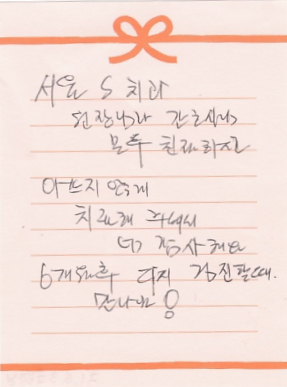 서울 S 치과
원장님과 간호사님
모두 친절하고
아프지 않게
치료해 주셔서
너무 감사해요
6개월후 다시 검진할때.
만나요!